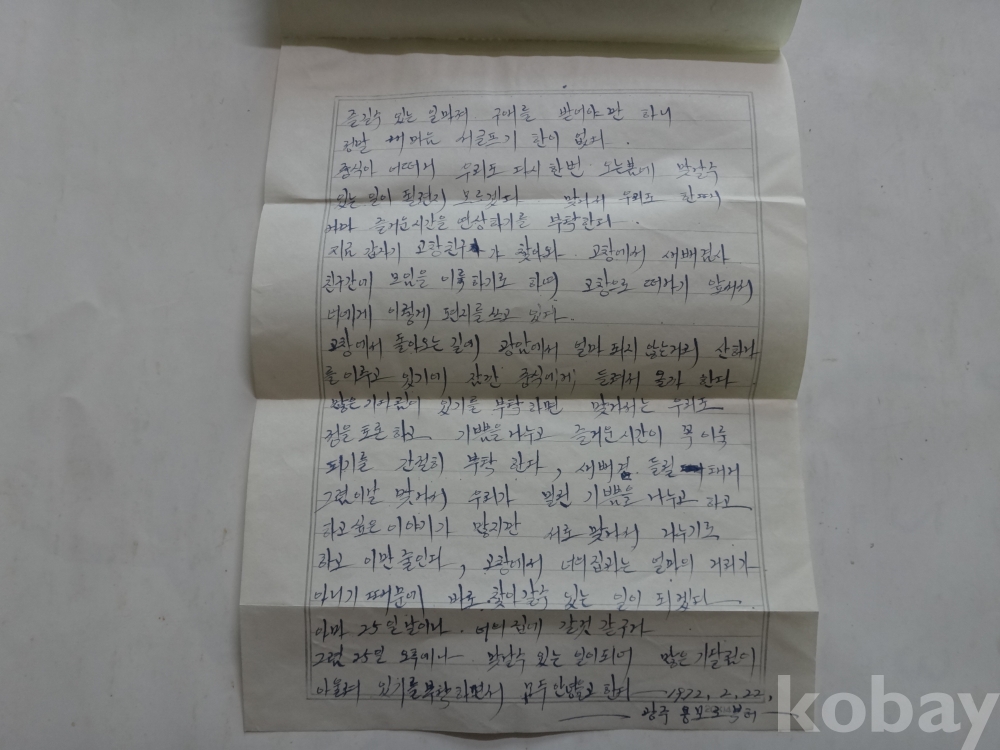 즐길수 있는 얼마적 구애를 받어야만 하니
정말 서글프기 한이 없다.
종식아 어떠케 우리도 다시한번 오는봄에 맞날수
있는 일이 될런지 모르겠다 맞나서 우리도 한때
즐거운시간을 연상하기를 부탁한다.
지금 갑자기 고창친구가 찾아와 고창에서 새배겸사
친구간에 모임을 이룩하기로 하여 고창으로 떠나기 앞서서
너에게 이렇게 편지를 쓰고 있다.
고창에서 돌아오는 길에 얼마 되지않는거리
를 이루고 있기에 잠간 종식에게 들려서 올가 한다
많은 기다림이 있기를 부탁하면 맞나서는 우리도
정을 토론하고 기쁨을 나누고 즐거운시간이 꼭 이룩
되기를 간절히 부탁 한다, 새배겸 들릴
그럼이날 맞나서 우리가 밀린 기쁨을 나누고 하고
하고싶은 이야기가 많지만 서로 맞나서 나누기로
하고 이만 줄인다, 고창에서 너의집과는 얼마의 거리가
아니기 때문에 바로 찾아갈수 있는 일이 되겠다
아마 25일날이나 너의집에 갈것 같구나
그럼 25일 오후에나 맞날수 있는 일이되어 많은 기달림이
아울러 있기를 부탁하면서 한다 1972. 2. 22,
광주 용보로부터
kobay